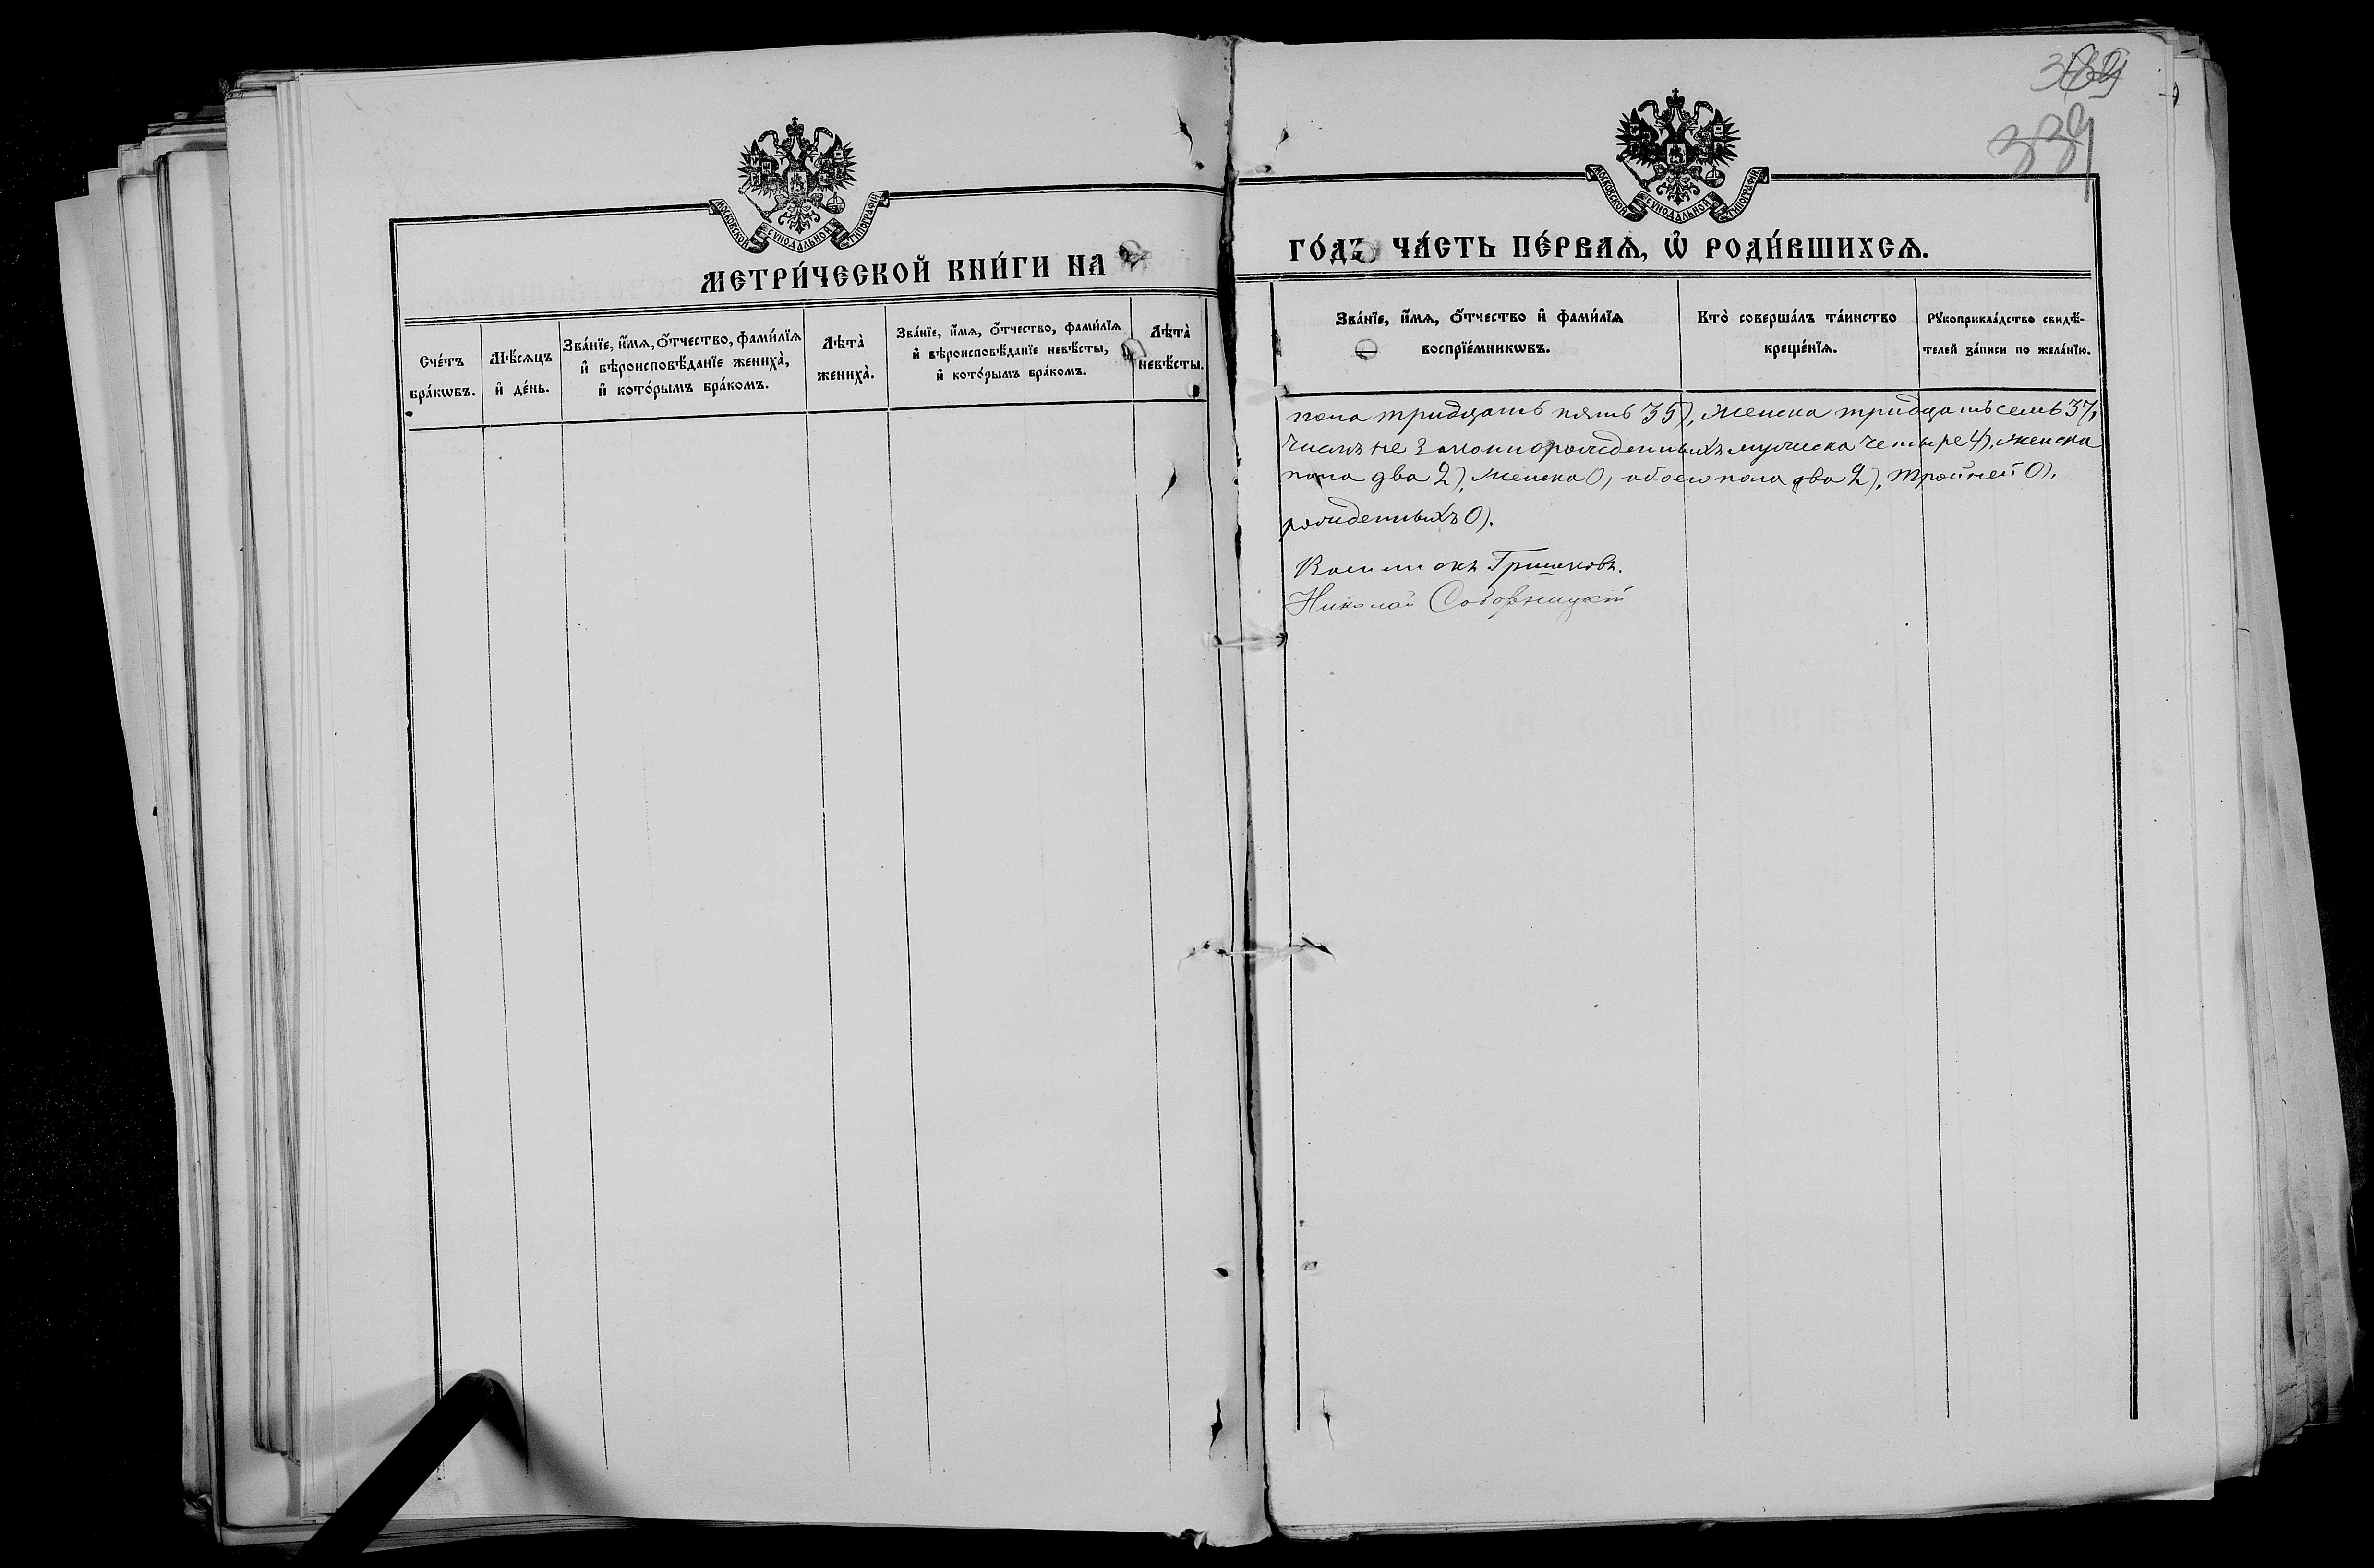 МОСКОВСКОЙ СѴНОДАЛЬНОЙ ТИПОГРАФІИ
МЕТРИ́ЧЕСКОЙ КНИ́ГИ НА
Сче́тъ бра́кѡвъ.
Мѣ́сяцъ и҆ де́нь.
Зва́нїе, и҆́мѧ, ѻ҆́тчество, фами́лїѧ и҆ вѣроисповѣ́данїе жениха̀, и҆ кото́рымъ бра́комъ.
Лѣта̀ жениха̀.
Зва́нїе, и҆́мѧ, ѻ҆́тчество, фами́лїѧ и҆ вѣроисповѣ́данїе невѣ́сты, и҆ кото́рымъ бра́комъ.
Лѣта̀ невѣ́сты.
339
МОСКОВСКОЙ СѴНОДАЛЬНОЙ ТИПОГРАФІИ
ГО́ДЪ ЧА́СТЬ ПЕ́РВАѦ, Ѽ РОДИ́ВШИХСѦ.
Зва́нїе, и҆́мѧ, ѻ҆́тчество и҆ фами́лїѧ воспрїе́мникѡвъ.
Кто̀ соверша́лъ та́инство креще́нїѧ.
Рꙋкоприкла́дство свидѣ́телей за́писи по жела́нїю.
пола тридцать пять 35), женска тридцать семь 37,
числѣ не законнорожденныхъ мужеска четыре 4), женска
пола два 2), женска 0, обоего пола два 2), тройней 0),
рожденныхъ 0).
Гришковъ.
Николай